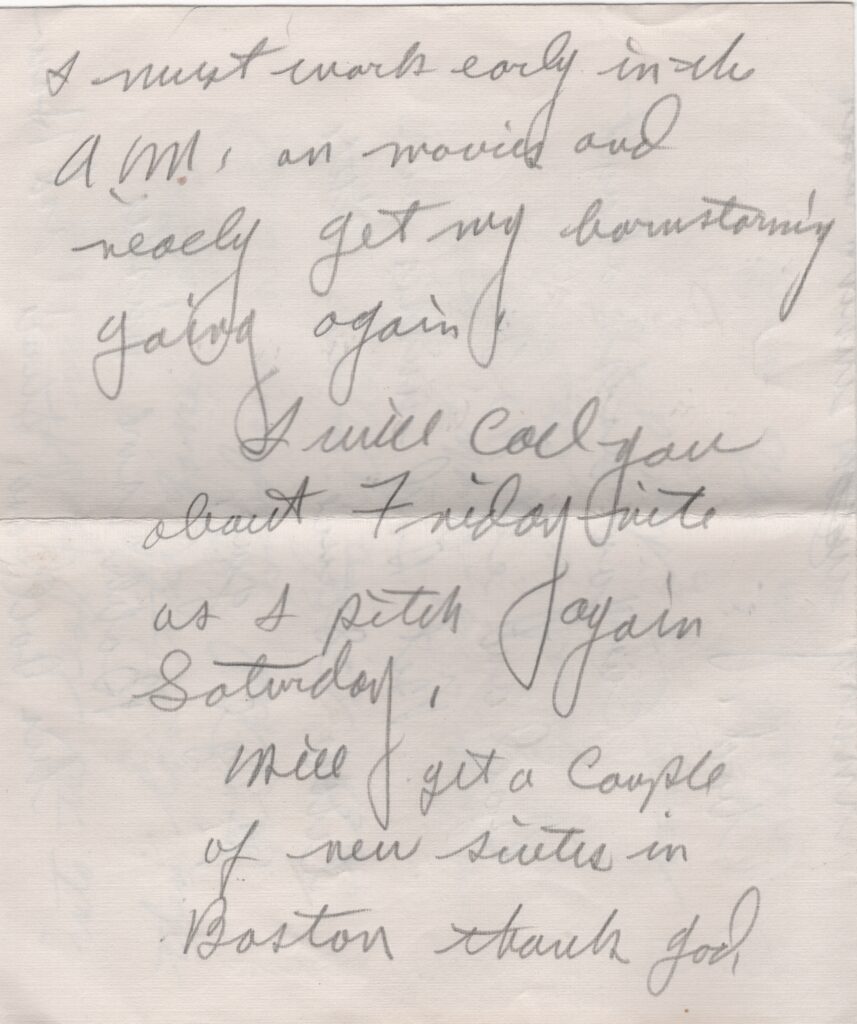 I must work early in the
A.M. on movies and
really get my barnstorming
going again.
I will call you
about Friday nite
as I pitch again
Saturday.
Will get a couple
of new suites in
Boston thank god.